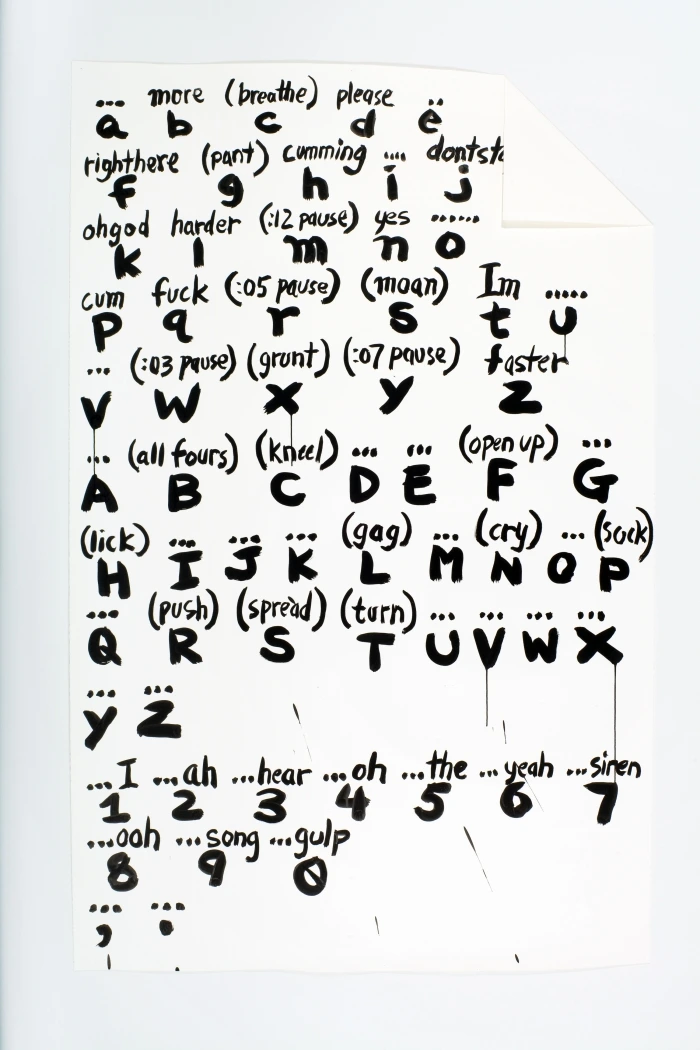 ... more (breathe) please ..
a b c d e
righthere (pant) cumming .... dontsto
f g h i j
ohgod harder (:12 pause) yes ......
k l m n o
cum fuck (:05 pause) (moan) Im .....
p q r s t u
... (:03 pause) (grunt) (:07 pause) faster
V W X y Z
... (all fours) (kneel) ... ... (open up) ...
A B C D E F G
(lick) ... ... ... (gag) ... (cry) ... (suck)
H I J K L M N O P
... (push) (spread) (turn) ... ... ... ...
Q R S T U V W X
... ...
y Z
...I ...ah ...hear ...oh ...the ...yeah ...siren
1 2 3 4 5 6 7
...ooh ...song ...gulp
8 9 0
... ...
, .